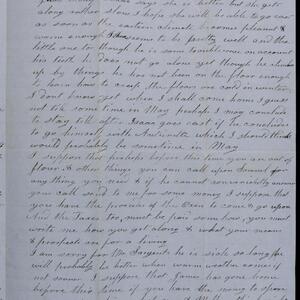 says she is better but she gets
along rather slow I hope she will be able to go east
as soon as the eastern climate becomes pleasant &
warm enough I seems to be pretty well and the
little one too though he is some troublesome on account
his teeth he does not go alone yet though he climbs
up by things he has not been on the floor enough
to learn how to creep the floors are cold in winter
I dont know yet when I shall come home I guess
not till some time in May perhaps I may conclude
to stay till after Isaac goes east if he concludes
to go himself with Antinette which I should think
would probably be sometime in May
I suppose that perhaps before this time you are out of
flour & other things you can call upon Samuel for
any thing you need & if he cannot conveniently answer
you call and to me for some money I suppose that
you have the promise of the Oxen to come & go upon
And the Taxes too, must be paid some how, you must
write me how you get along & what your means
& prospects are for a living
I am sorry for Mr Sargents he is sick so long he
will probably be better when warm weather comes if
not sooner I suppose that James has gone home
before this time if you have the money to spare